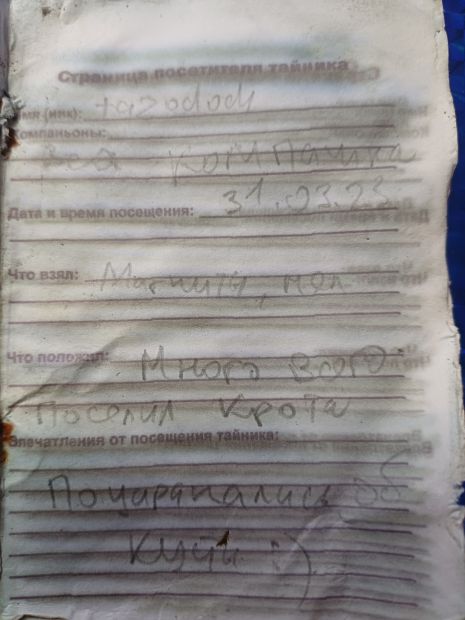 Страница посетителя тайника
Имя (ник): tazodod
Компаньоны:
вся компашка
Дата и время посещения: 31.03.23
Что взял: Магниты,
Что положил: Много всего
поселил крота
Впечатления от посещения тайника:
Поцарапались об
кусты :)